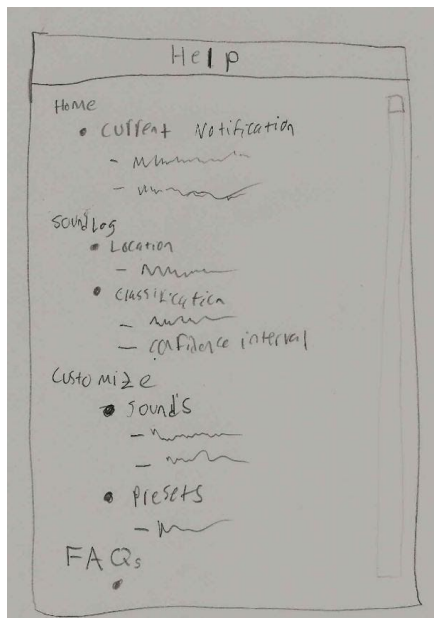 Help
Home
• Current Notification
Sound Log
• Location
• Classification
– confidence interval
Customize
• Sounds
• Presets
FAQs